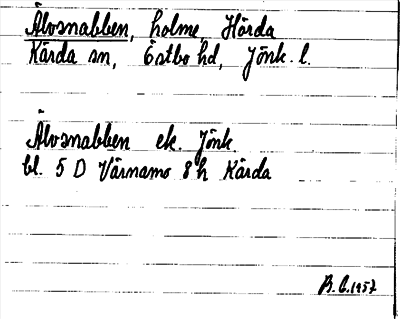 Älvsnabben, holme, Hörda
Kärda sn, Östbo hd, Jönk. l.
Älvsnabben ek. Jönk
bl. 5 D Värnamo 8 h Kärda
B.C. 1957